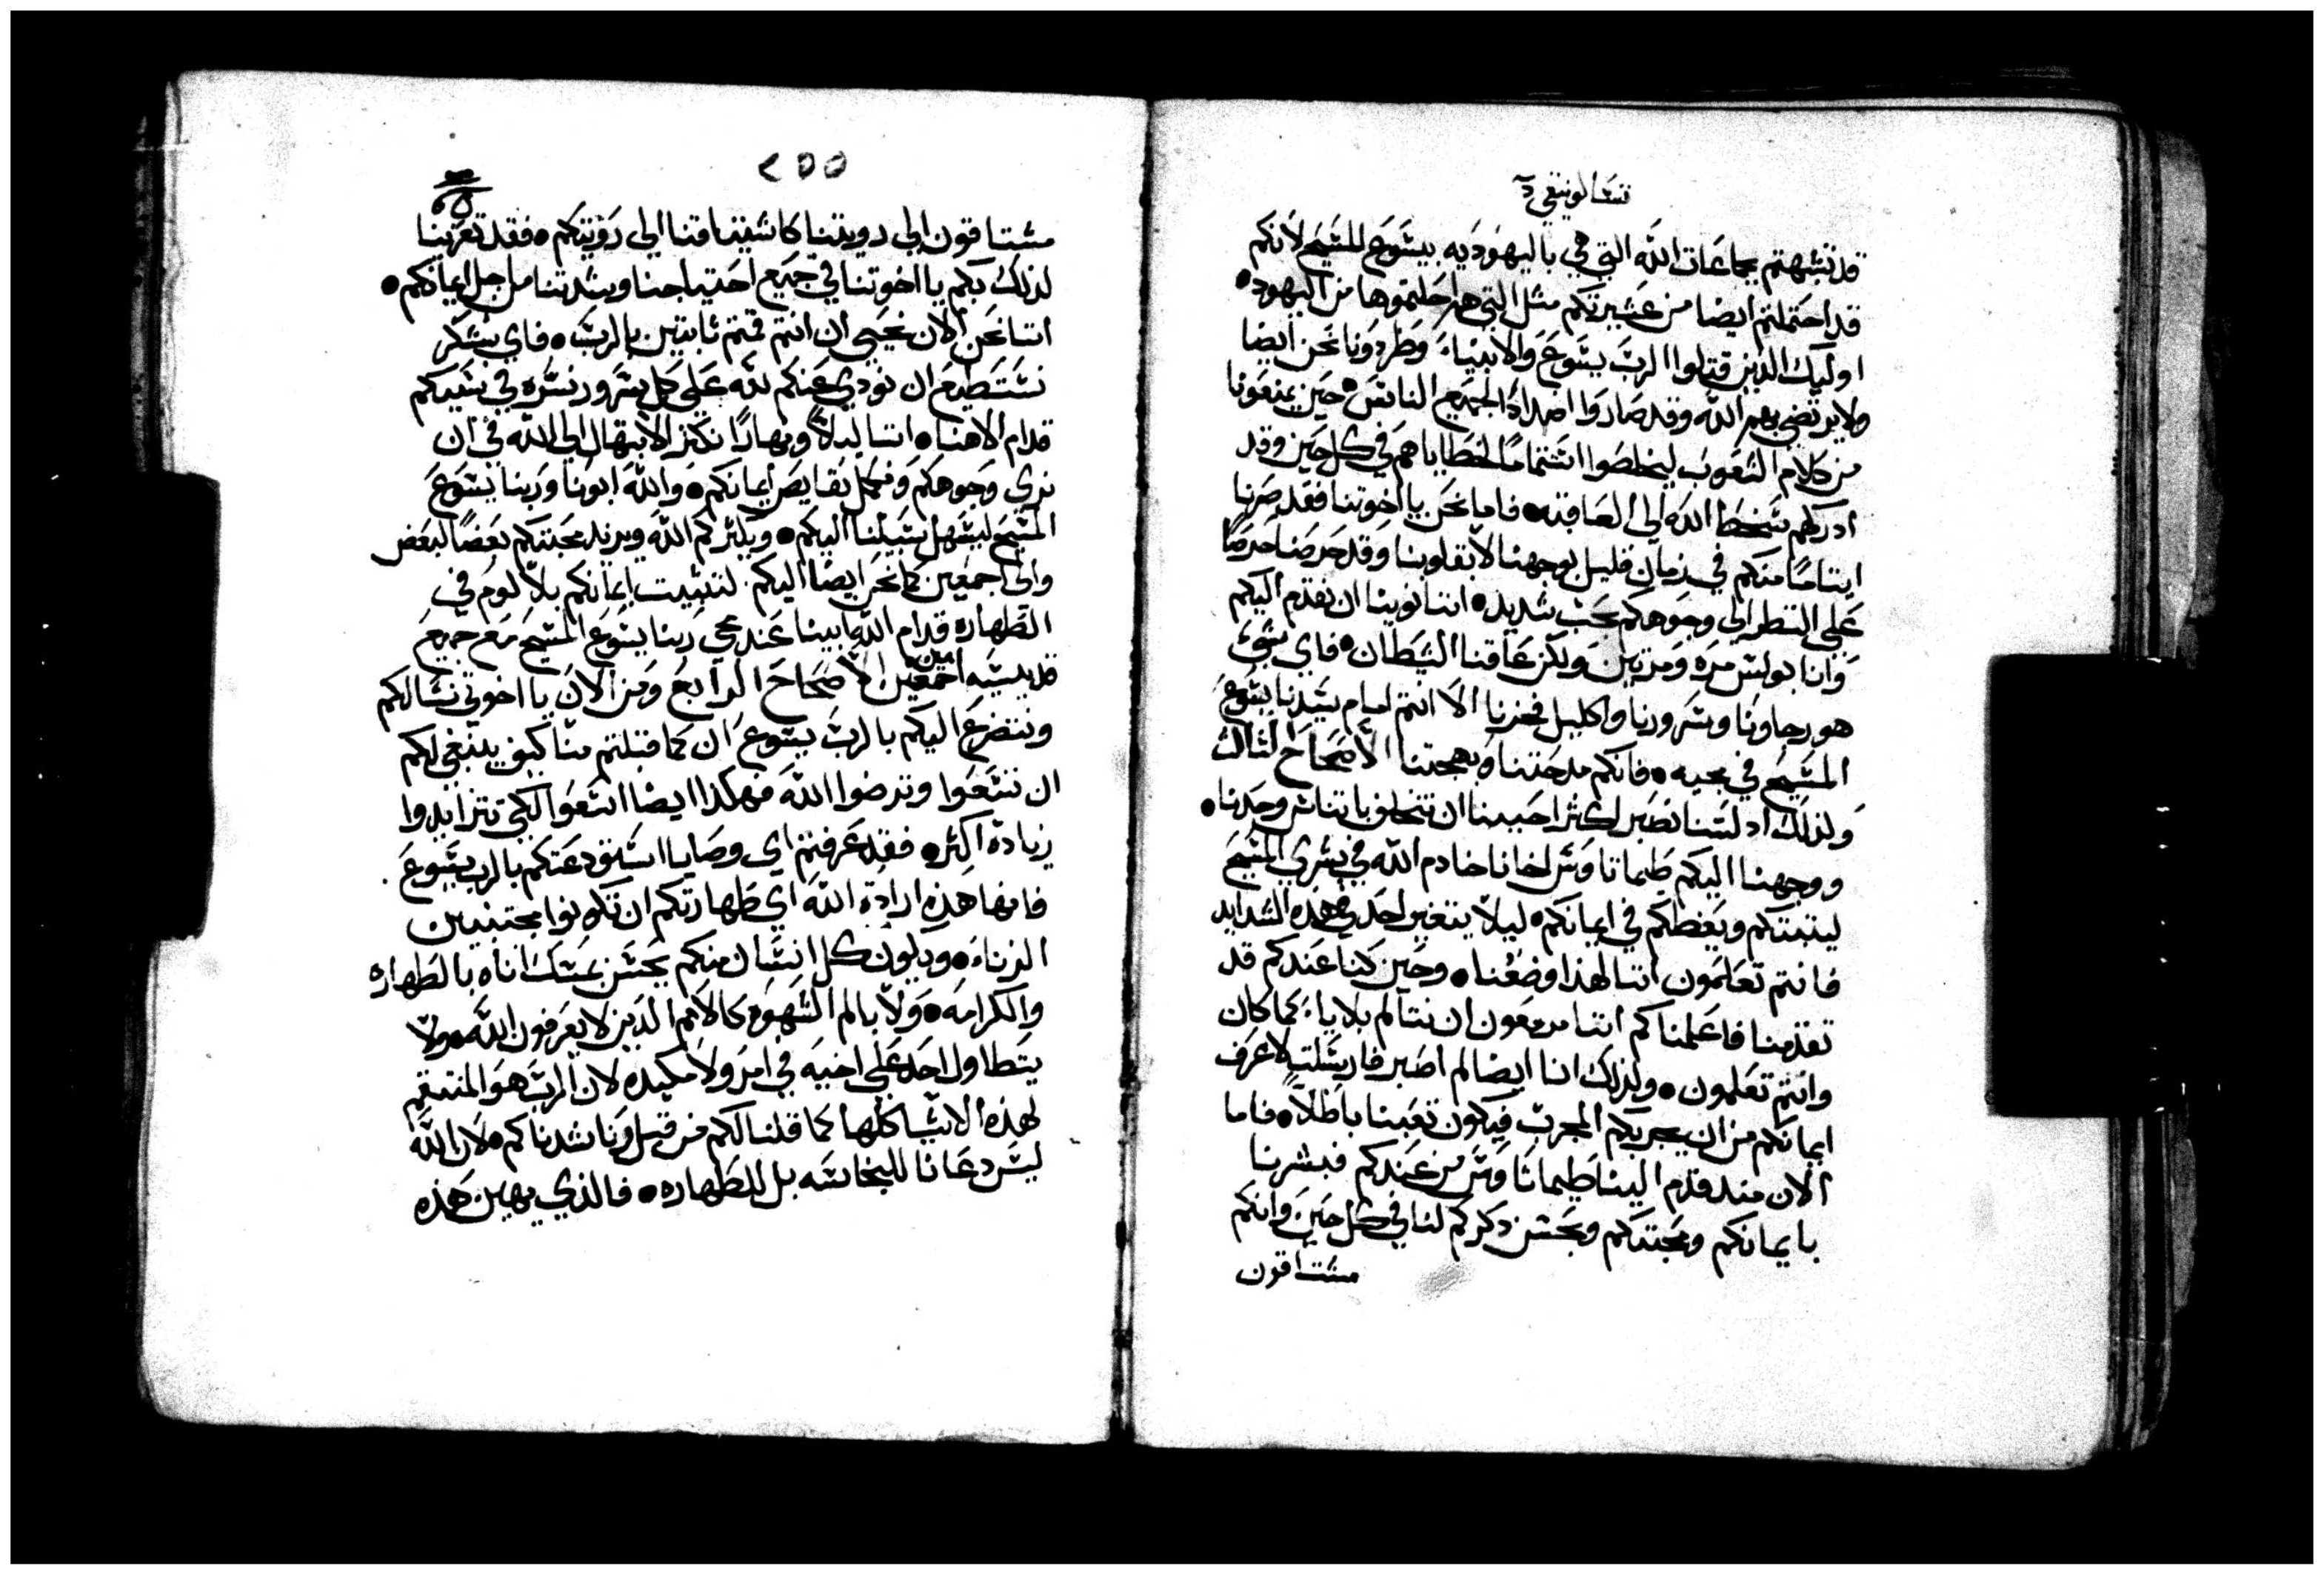 تسالونيقي
قد تشبهتم بجماعات الله التي هي باليهوديه بيشوع المشيح لانكم
قد احتملتم ايضا من عشيرتكم مثل التي هم احتملوها من اليهود•
اوليك الذين قتلوا الرب يشوع والانبياء وطردونا نحن ايضا
ولا يرتضي بهم الله وقد صاروا اضداد لجميع الناش• حين يمنعونا
من كلام الشعوب ليخلصوا اشتماما لخطاياهم في كل حين وقد
ادركهم شخط الله الي العاقبه• فاما نحن يا اخوتنا فقد صرنا
ايتاما منكم في زمان قليل بوجهنا لا بقلوبنا وقد حرصنا حرصا
علي النظر الي وجوهكم بحب شديد• اننا نوينا ان نقدم اليكم
وانا بولش مره ومرتين ولكن عاقنا الشيطان• فاي شي
هو رجاونا وشرورنا واكليل فخرنا الا انتم امام شيدنا يشوع
المشيح في مجيه• فانكم مدحتنا وبهجتنا الاصحاح الثالث
ولذلك اد لشنا نصبر اكثر احببنا ان نتخلف باتناش وحدنا•
ووجهنا اليكم طيماتاوش اخانا خادم الله في بشري المشيح
ليتبتكم ويعظكم في ايمانكم• ليلا يتغير احد في هذه الشدايد
فانتم تعلمون اننا لهذا وضعنا• وحين كنا عندكم قد
تقدمنا فاعلمناكم اننا مزمعون ان نتالم بلايا، كما كان
وانتم تعلمون• ولذلك انا ايضا لم اصبر فارشلت لاعرف
ايمانكم من ان يجربكم المجرب فيكون تعبنا باطلا• فاما
الان منذ قدم الينا طيماتاوش من عندكم فبشرنا
بايمانكم ومحبتكم وبحشن ذكركم لنا في كل حين وانكم
مشتاقون
٢٥٥
مشتاقون الي رويتنا كاشتياقنا الي رويتكم• فقد تعزينا
لذلك بكم يا اخوتنا في جميع احتياجنا وشدتنا من اجل ايمانكم•
اننا نحن الان نحيي ان انتم قمتم ثابتين بالرب• فاي شكر
نشتطيع ان نودي عنكم لله علي كل شرور نشر به في شببكم
قدام الاهنا• اننا ليلا ونهارا نكثر الابتهال الي الله في ان
نري وجوهكم ونكمل نقايص ايمانكم• والله ابونا وربنا يشوع
المشيح ليشهل شبيلنا اليكم• ويكثركم الله ويزيد محبتكم بعضا لبعض
والي اجمعين كما نحن ايضا اليكم لتثبيت ايمانكم بلا لوم في
الطهاره قدام الله ابينا عند مجي ربنا يشوع المشيح مع جميع
قديشيه اجمعين امين الاصحاح الرابع ومن الان يا اخوتي نشالكم
ونتضرع اليكم بالرب يشوع ان كما قبلتم منا كيف ينبغي لكم
ان تشعوا وترضوا الله فهكدا ايضا اشعوا لكي تتزايدوا
زيادة اكثر• فقد عرفتم اي وصايا اشتودعتكم بالرب يشوع
فانها هذه ارادة الله اي طهارتكم ان تكونوا مجتنبين
الزناء• ويكون كل انشان منكم يحشن يمشك اناه بالطهاره
والكرامه• ولا بالم الشهوه كالامم الذين لا يعرفون الله• ولا
يتطاول احد علي اخيه في امر ولا مكيده لان الرب هو المنتقم
لهذه الاشيا كلها كما قلنا لكم من قبل وناشدناكم• لان الله
ليش دعانا للنجاشه بل للطهاره• فالذي يهين هذه